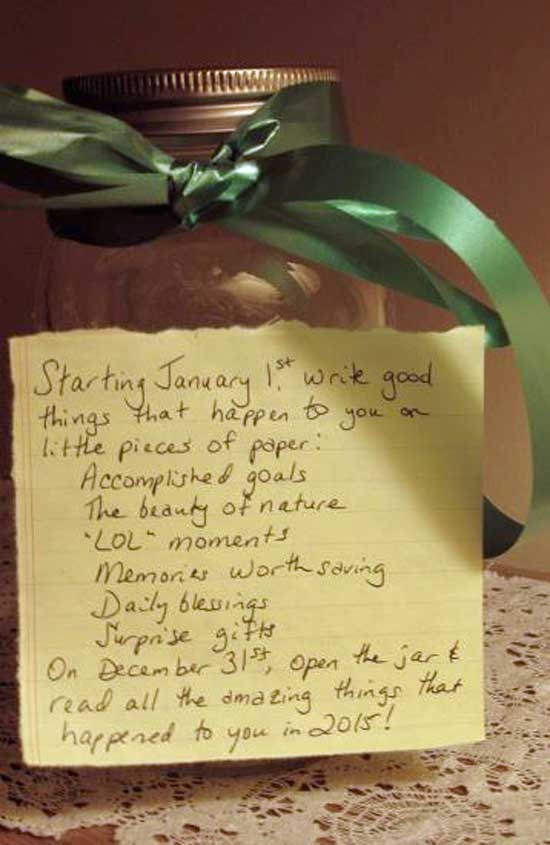 Starting January 1st. Write good
things that happen to you on
little pieces of paper:
Accomplished goals
The beauty of nature
"LOL" moments
Memories worth saving
Daily blessings
Surprise gifts
On December 31st, open the jar &
read all the amazing things that
happened to you in 2015!